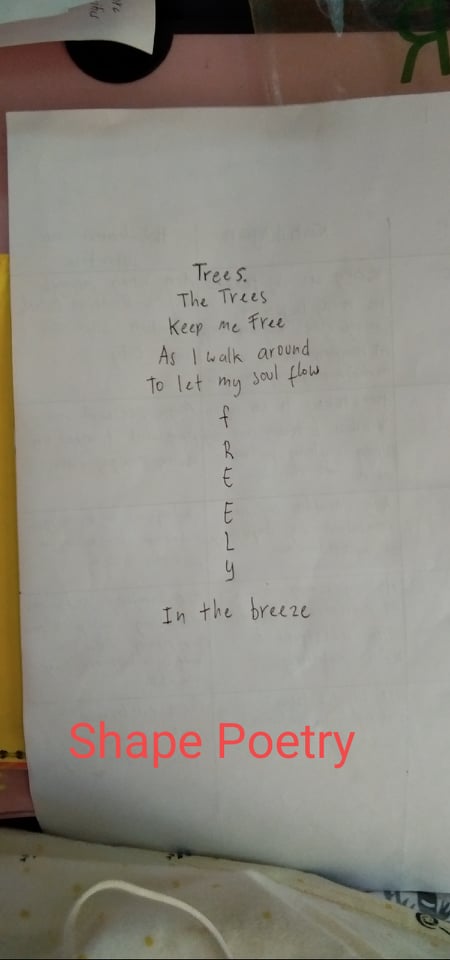 Trees.
The Trees
Keep me Free
As I walk around
To let my soul flow
f
R
E
E
L
y
In the breeze
Shape Poetry